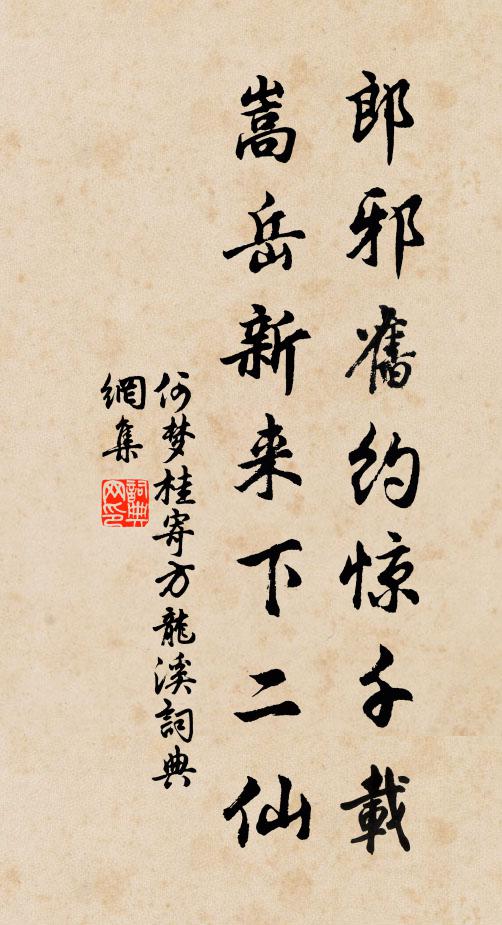 郎邪舊约惊千載
嵩岳新来下二仙
何梦桂寄方龍溪詞典
網集
詞典网印